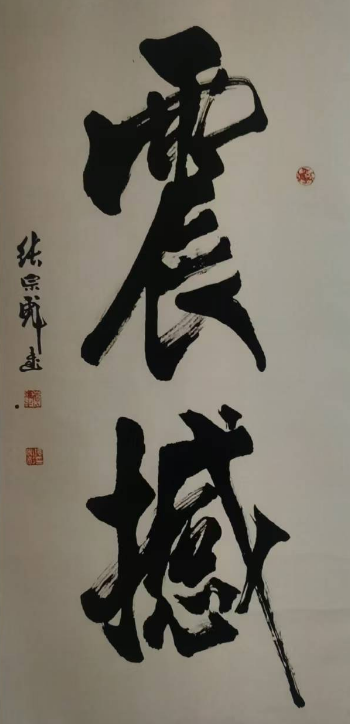 震撼
张宗彪书